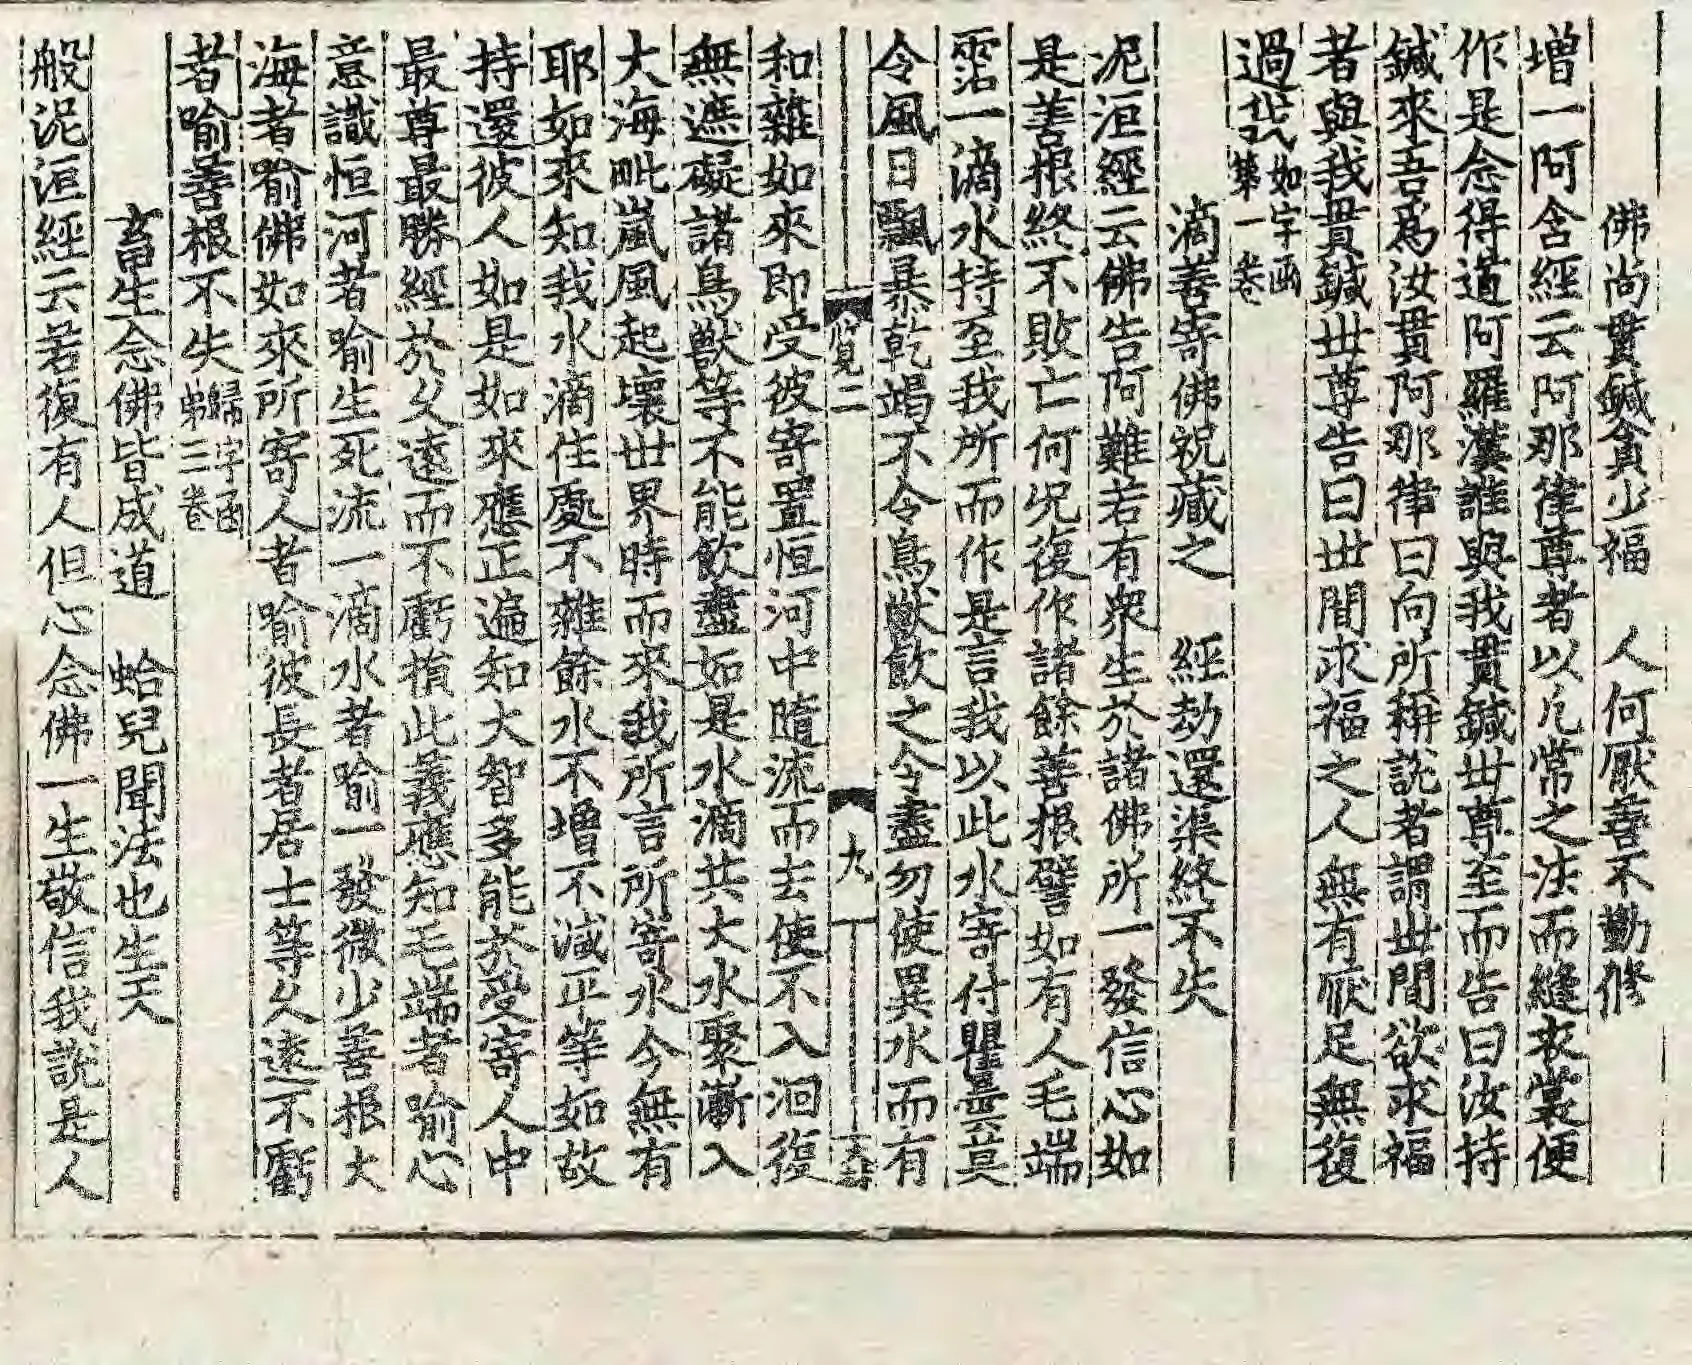 佛尚貫鍼貪少福　人何厭善不勤修
増一阿含經云阿那律尊者以凡常之法而縫衣裳便
作是念得道阿羅漢誰與我貫鍼世尊至而告曰汝持
鍼來吾爲汝貫阿那律曰向所稱說者謂世間欲求福
者與我貫鍼世尊告曰世間求福之人無有厭足無復
過我如字函第一卷
滴善寄佛祝藏之　經劫還渠終不失
泥洹經云佛告阿難若有衆生於諸佛所一發信心如
是善根終不敗亡何况復作諸餘善根譬如有人毛端
霑一滴水持至我所而作是言我以此水寄付瞿曇莫
令風日飄暴乾竭不令鳥獸飮之令盡勿使異水而有
覧二　九
和雜如來即受彼寄置恒河中隨流而去使不入洄復
無遮礙諸鳥獸等不能飮盡如是水滴共大水聚漸入
大海毗嵐風起壞世界時而來我所言所寄水今無有
耶如來知我水滴住處不雜餘水不增不減正等如故
持還彼人如是如來應正遍知大智多能於受寄人中
最尊最勝經於久遠而不虧損此義應知毛端者喻心
意識恒河者喻生死流一滴水者喻一發微少善根大
海者喻佛如來所寄人者喻彼長者居士等久遠不虧
者喻善根不失歸字函第三卷
畜生念佛皆成道　蛤兒聞法也生天
般泥洹經云若復有人但心念佛一生敬信我說是人